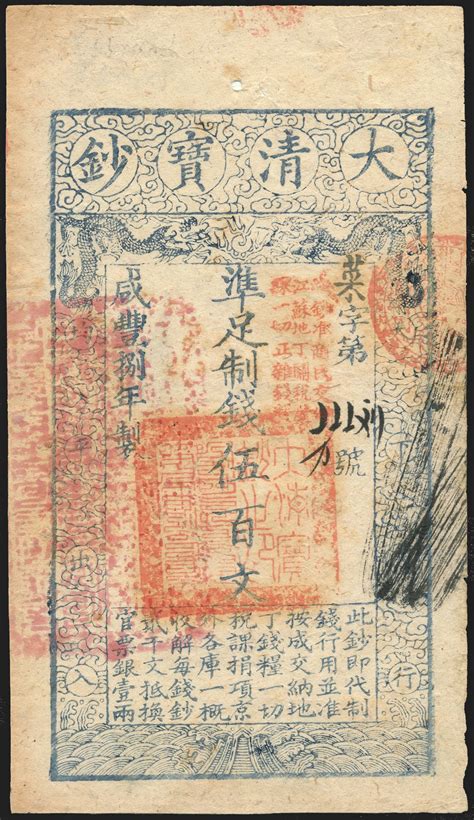 大清寶鈔
下
行
菜字第
號
江蘇地丁關稅
一切正雜
準足制錢伍百文
咸豐捌年製
出
入
此鈔即代制
錢行用並准
按成交納地
丁錢糧一切
稅課捐項京
外各庫一概
收解每錢鈔
貳千文抵換
官票銀壹兩